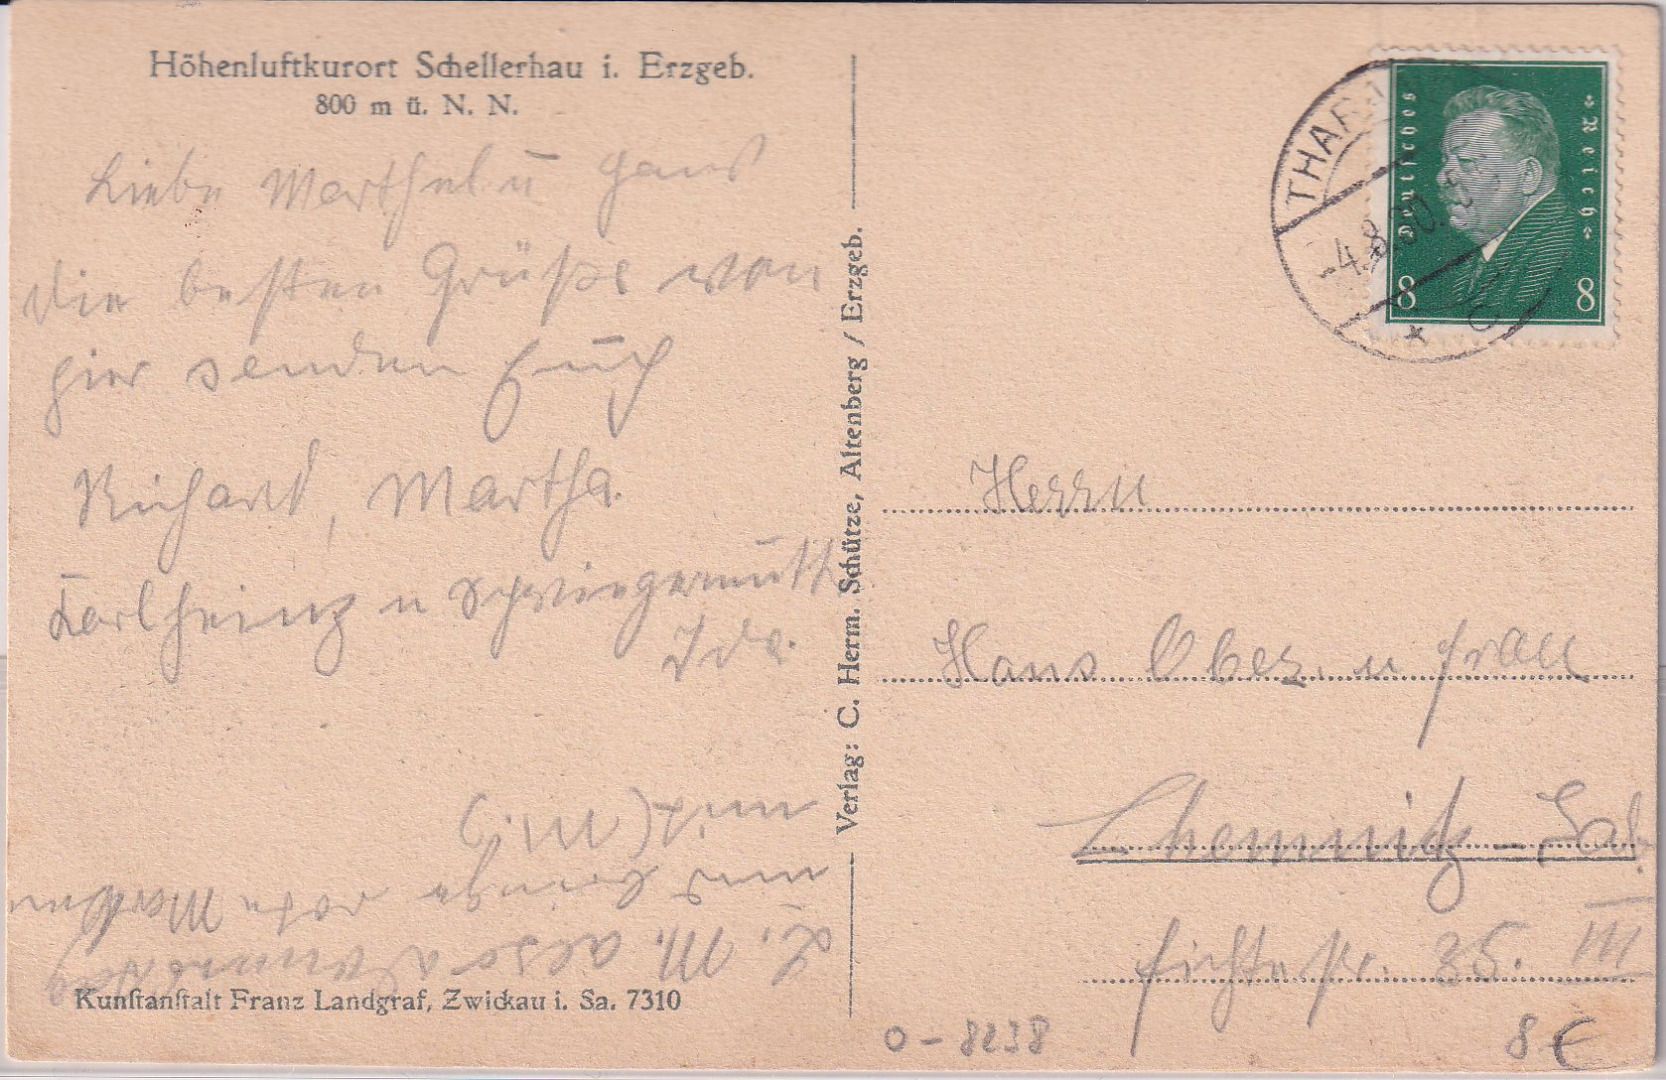 Höhenluftkurort Schellerhau i. Erzgeb.
800 m ü. N. N.
Liebe Marthel u Hans
die besten Grüße von
hier senden Euch
Richard, Martha.
Karlheinz u Schwiegermutt
Ida.
L. M. also
und bringe rote
mit (M.)
Kunstanstalt Franz Landgraf, Zwickau i. Sa. 7310
Verlag: C. Herm. Schütze, Altenberg / Erzgeb.
THAR
-4.8.30.
* c
Deutsches Reich
8 8
Herrn
Hans Ober. u Frau
Chemnitz - Gab.
Fichtestr. 35. III
0 - 8238
8 €